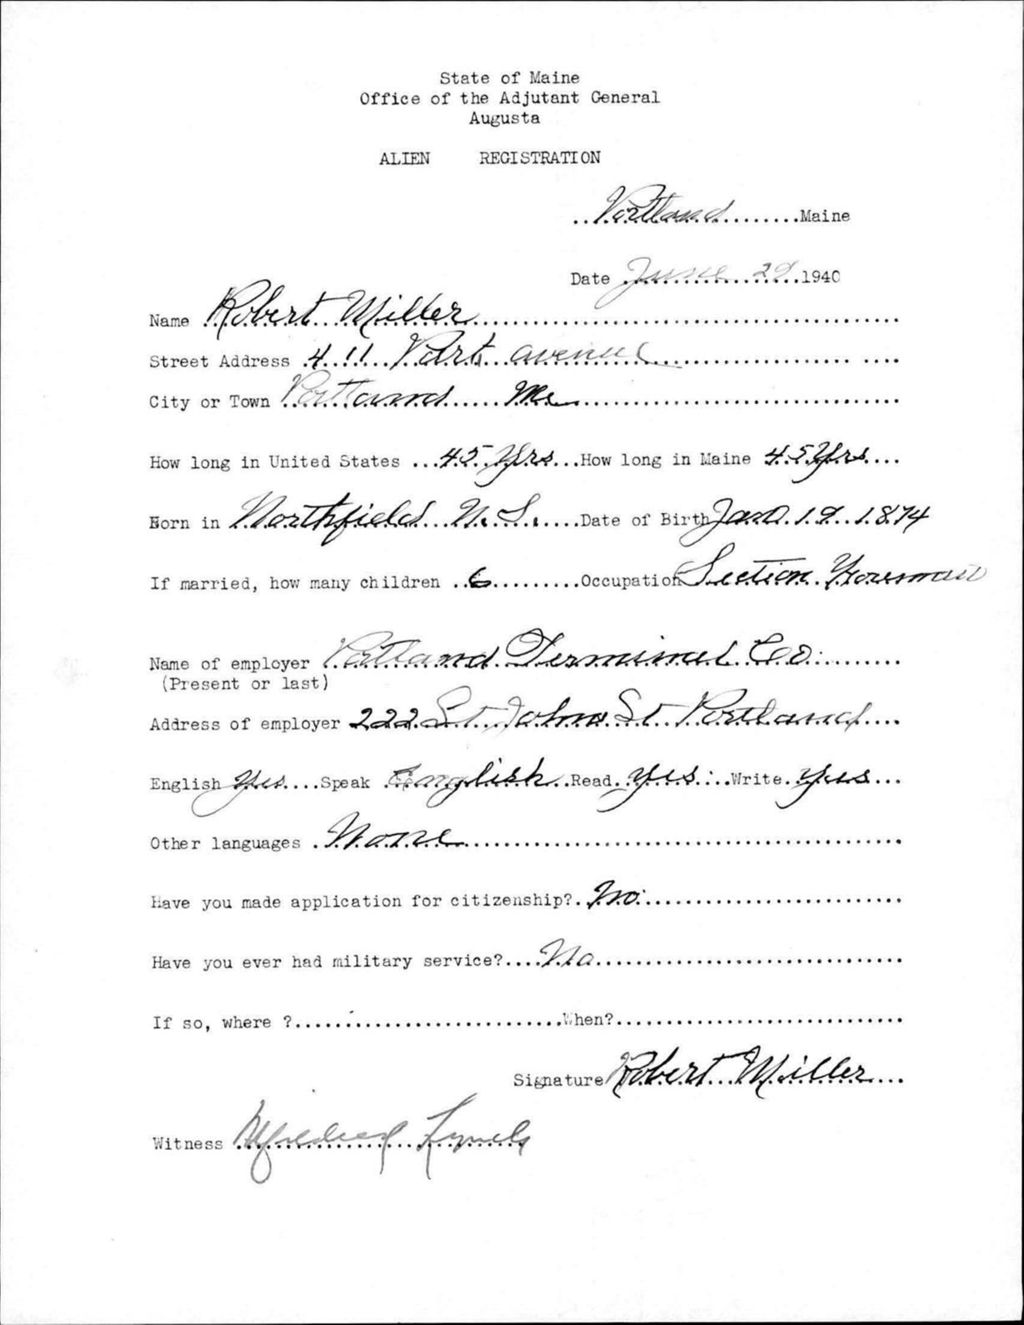 State of Maine
Office of the Adjutant General
Augusta
ALIEN REGISTRATION
Portland Maine
Date June 29 1940
Name Robert Miller
Street Address 411 Park avenue
City or Town Portland Me
How long in United States 45 Yrs How long in Maine 45 Yrs
Born in Northfield N. S. Date of Birth Jan 19 1874
If married, how many children 6 Occupation Section
Name of employer Portland Terminal Co
(Present or last)
Address of employer 222 St John St Portland
English Yes Speak English Read Yes Write Yes
Other languages None
Have you made application for citizenship? No
Have you ever had military service? No
If so, where ? When?
Signature Robert Miller
Witness Mildred